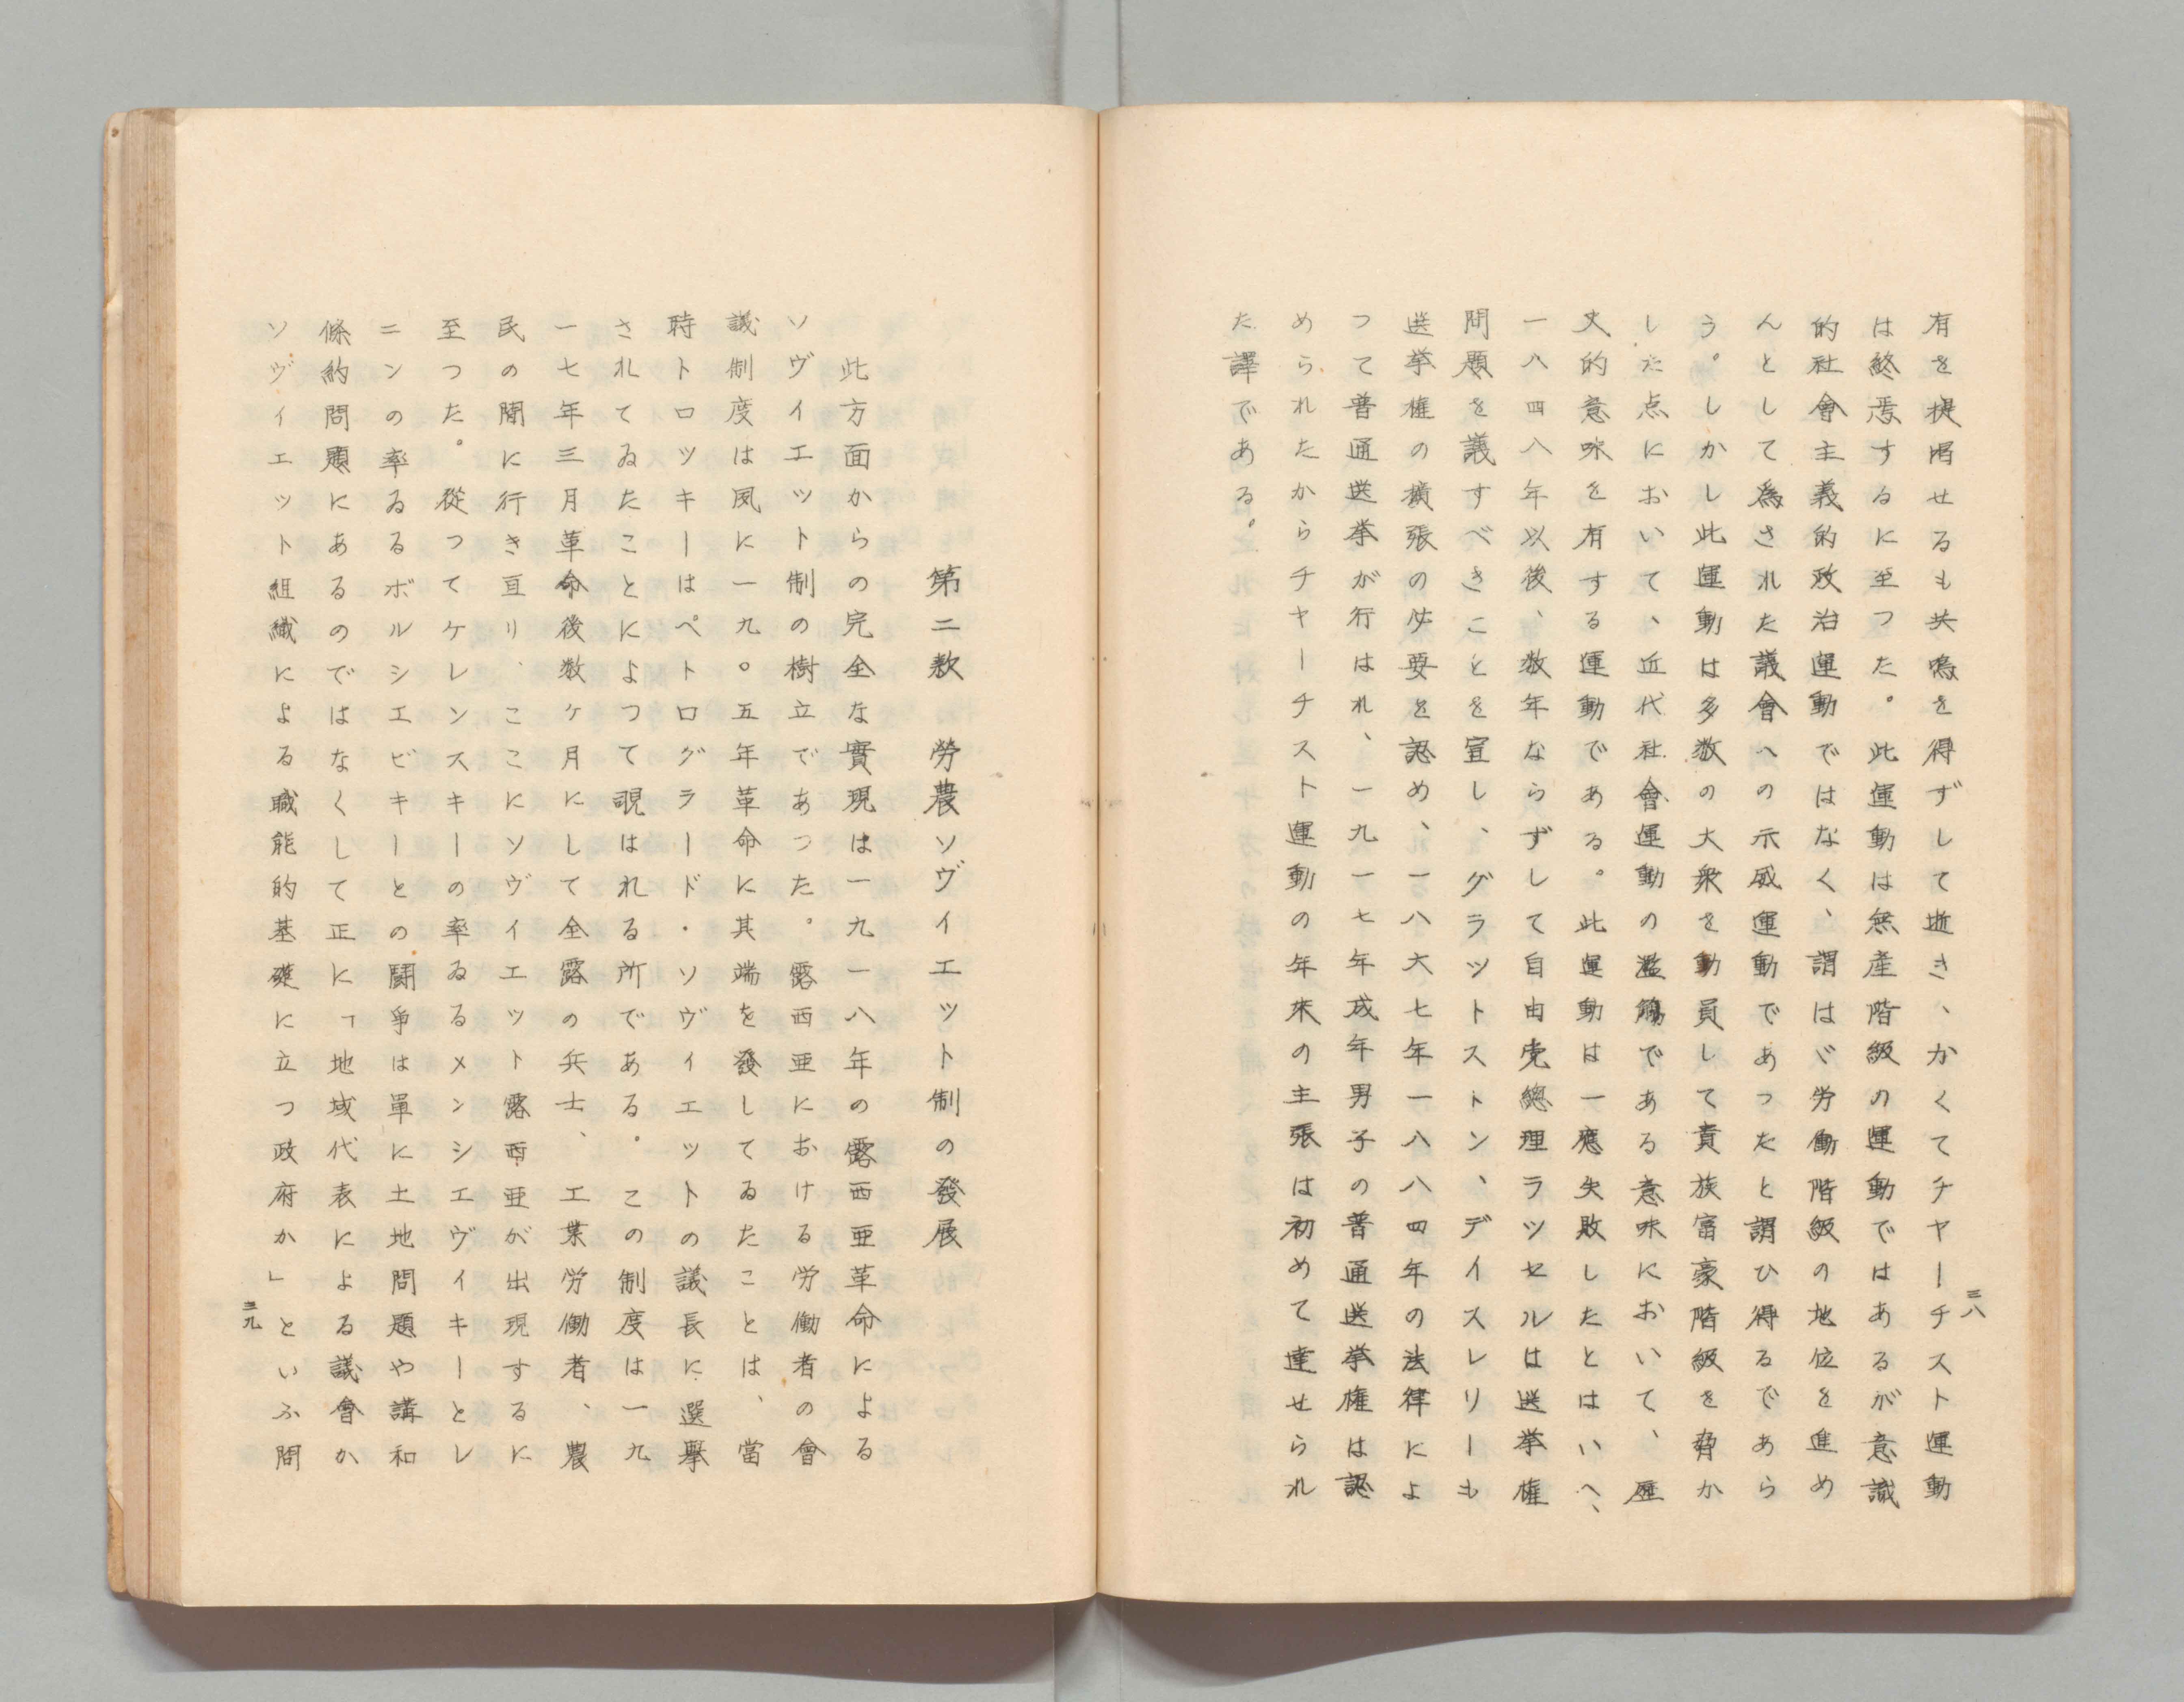 有を提唱せるも共鳴を得ずして逝き、かくてチヤーチスト運動
は終熄するに至つた。此運動は無産階級の運動ではあるが意識
的社會主義的政治運動ではなく、謂はゞ労働階級の地位を進め
んとして為された議會への示威運動であつたと謂ひ得るであら
う。しかし此運動は多数の大衆を動員して貴族富豪階級を脅か
した点において、近代社會運動の濫觴である意味において、歴
史的意味を有する運動である。此運動は一應失敗したとはいへ、
一八四八年以後、数年ならずして自由党總理ラツセルは送挙権
問題を議すべきことを宣し、グラツトストン、デイスレリーも
送挙権の擴張の必要を認め、一八六七年一八八四年の法律によ
つて普通送挙が行はれ、一九一七年成年男子の普通送挙権は認
められたからチヤーチスト運動の年来の主張は初めて達せられ
た譯である。
三八
第二款 勞農ソヴイエツト制の發展
此方面からの完全な實現は一九一八年の露西亜革命による
ソヴイエツト制の樹立であつた。露西亜における労働者の會
議制度は夙に一九〇五年革命に其端を發してゐたことは、當
時トロツキーはペトログラード・ソヴイエツトの議長に選擧
されてゐたことによつて覗はれる所である。この制度は一九
一七年三月革命後数ヶ月にして全露の兵士、工業労働者、農
民の間に行き亘り、ここにソヴイエツト露西亜が出現するに
至つた。從つてケレンスキーの率ゐるメンシエヴイキーとレ
ニンの率ゐるボルシエビキーとの鬪爭は單に土地問題や講和
條約問題にあるのではなくして正に「地域代表による議會か
ソヴイエツト組織による職能的基礎に立つ政府か」といふ問
三九